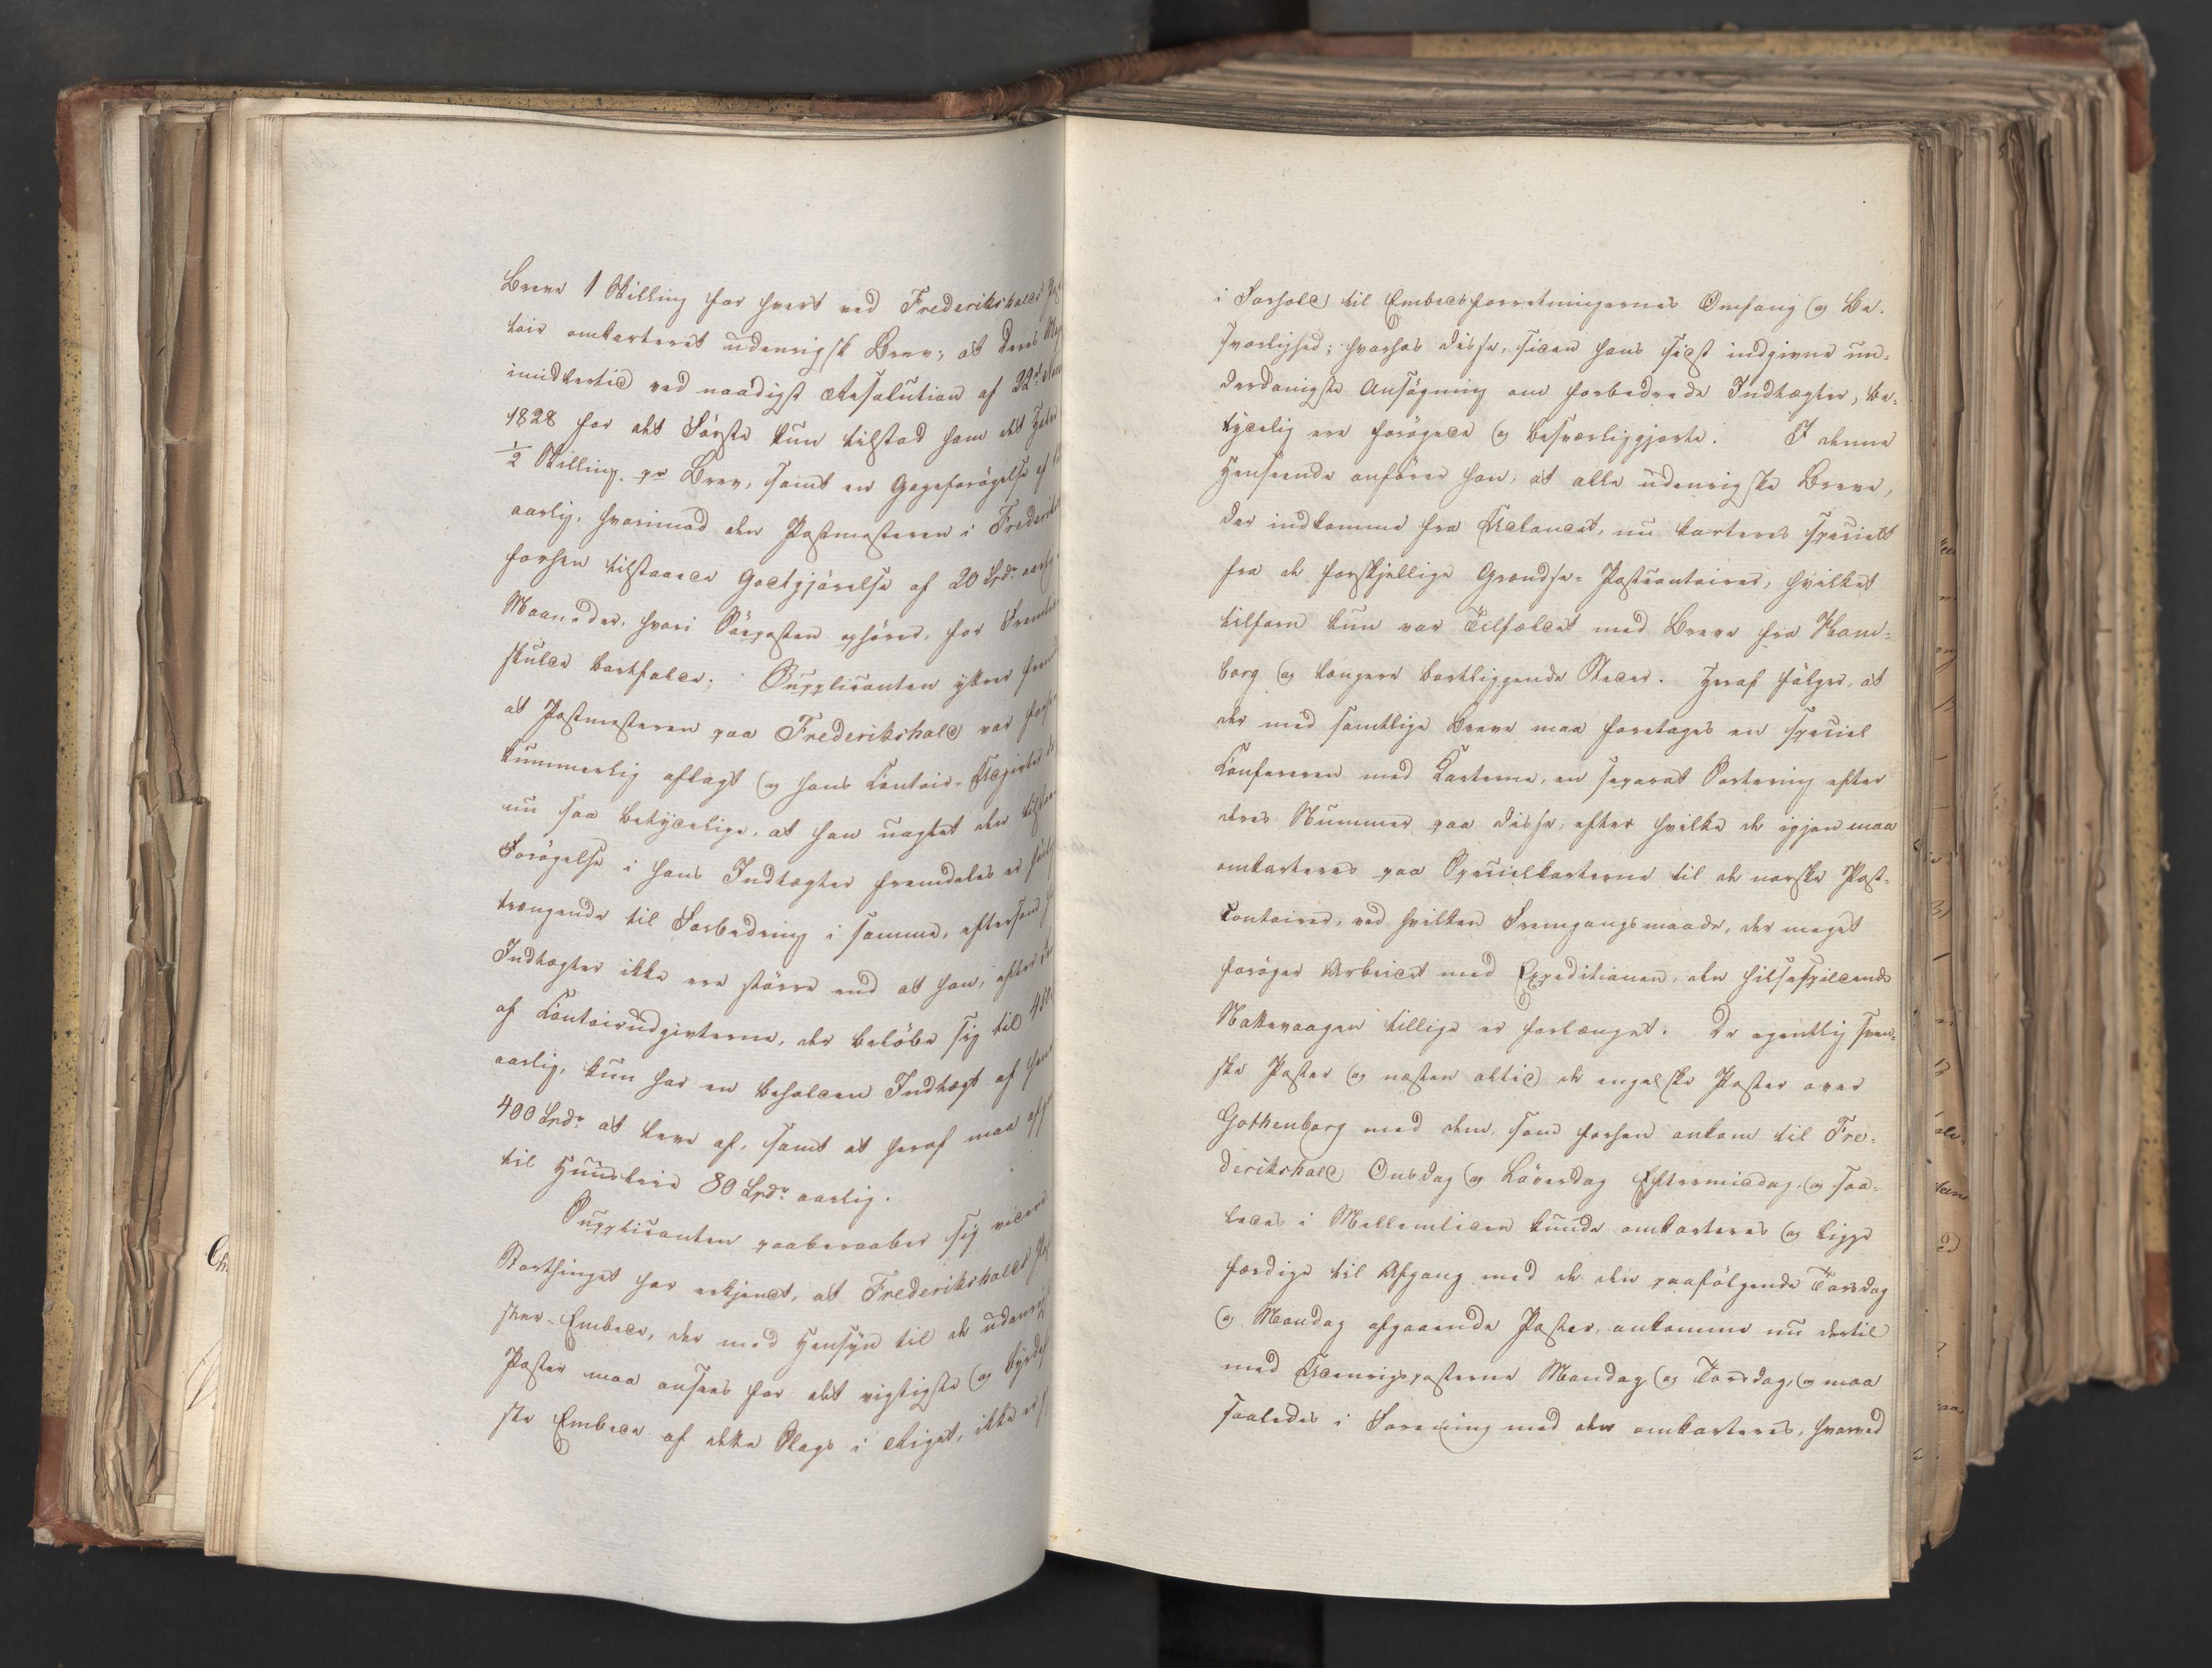 Breve 1 Skilling for hvert ved Frederikshalds
toir omkarteret udenrigsk Brev; at Deres
imidlertid ved naadigst Resolution af 22de
1828 for det Første kun tilstod ham det
½ Skilling pr Brev, samt en Gageforøgelse af
aarlig, hvorimod den Postmesteren i
forhen tilstaaede Godtgjørelse af 20 Spdr aarlig
Maaneder, hvori Søeposten ophører, for
skulde bortfalde. Supplicanten yttrer
at Postmesteren paa Frederikshald var forhen
kummerlig aflagt og hans Contoir-Udgivter
nu saa betydelige, at han uagtet den
Forøgelse i hans Indtægter fremdeles er
trængende til Forbedring i samme, eftersom
Indtægter ikke ere større end at han, efter
af Contoirudgivterne, der beløbe sig til
aarlig, kun har en beholden Indtægt af
400 Spdr at leve af, samt at heraf maa
til Huusleie 80 Spdr aarlig.
Supplicanten paaberaaber sig videre
Storthinget har erkjendt, at Frederikshalds
ster-Embede, der med Hensyn til de
Poster maa ansees for det vigtigste og
ste Embede af dette Slags i Riget, ikke er
i Forhold til Embedsforretningernes Omfang og Be-
sværlighed; hvorhos disse, siden hans sidst indgivne un-
derdanigste Ansøgning om forbedrede Indtægter, be-
tydelig ere forøgede og besværliggjorte. I denne
Henseende anfører han, at alle udenrigske Breve,
der indkomme fra Udlandet, nu karteres specielt
fra de forskjellige Grændse-Postcontoirer, hvilket
tilforn kun var Tilfældet med Breve fra Ham-
borg og længere bortliggende Steder. Heraf følger, at
der med samtlige Breve maa foretages en speciel
Confereren med Karterne, en separat Sortering efter
deres Nummer paa disse, efter hvilke de igjen maa
omkarteres paa Specielkarterne til de norske Post-
Contoirer, ved hvilken Fremgangsmaade, der meget
forøger Arbeidet med Expeditionen, den helsespildende
Nattevaagen tillige er forlænget. De egentlig sven-
ske Poster og næsten altid de engelske Poster over
Gothenborg med dem, som forhen ankom til Fre-
derikshald Onsdag og Løverdag Eftermiddag, og saa-
ledes i Mellemtiden kunde omkarteres og ligge
færdige til Afgang med de den paafølgende Torsdag
og Mandag afgaaende Poster, ankomme nu dertil
med Udenrigsposterne Mandag og Torsdag, og maa
saaledes i Forening med dem omkarteres, hvorved